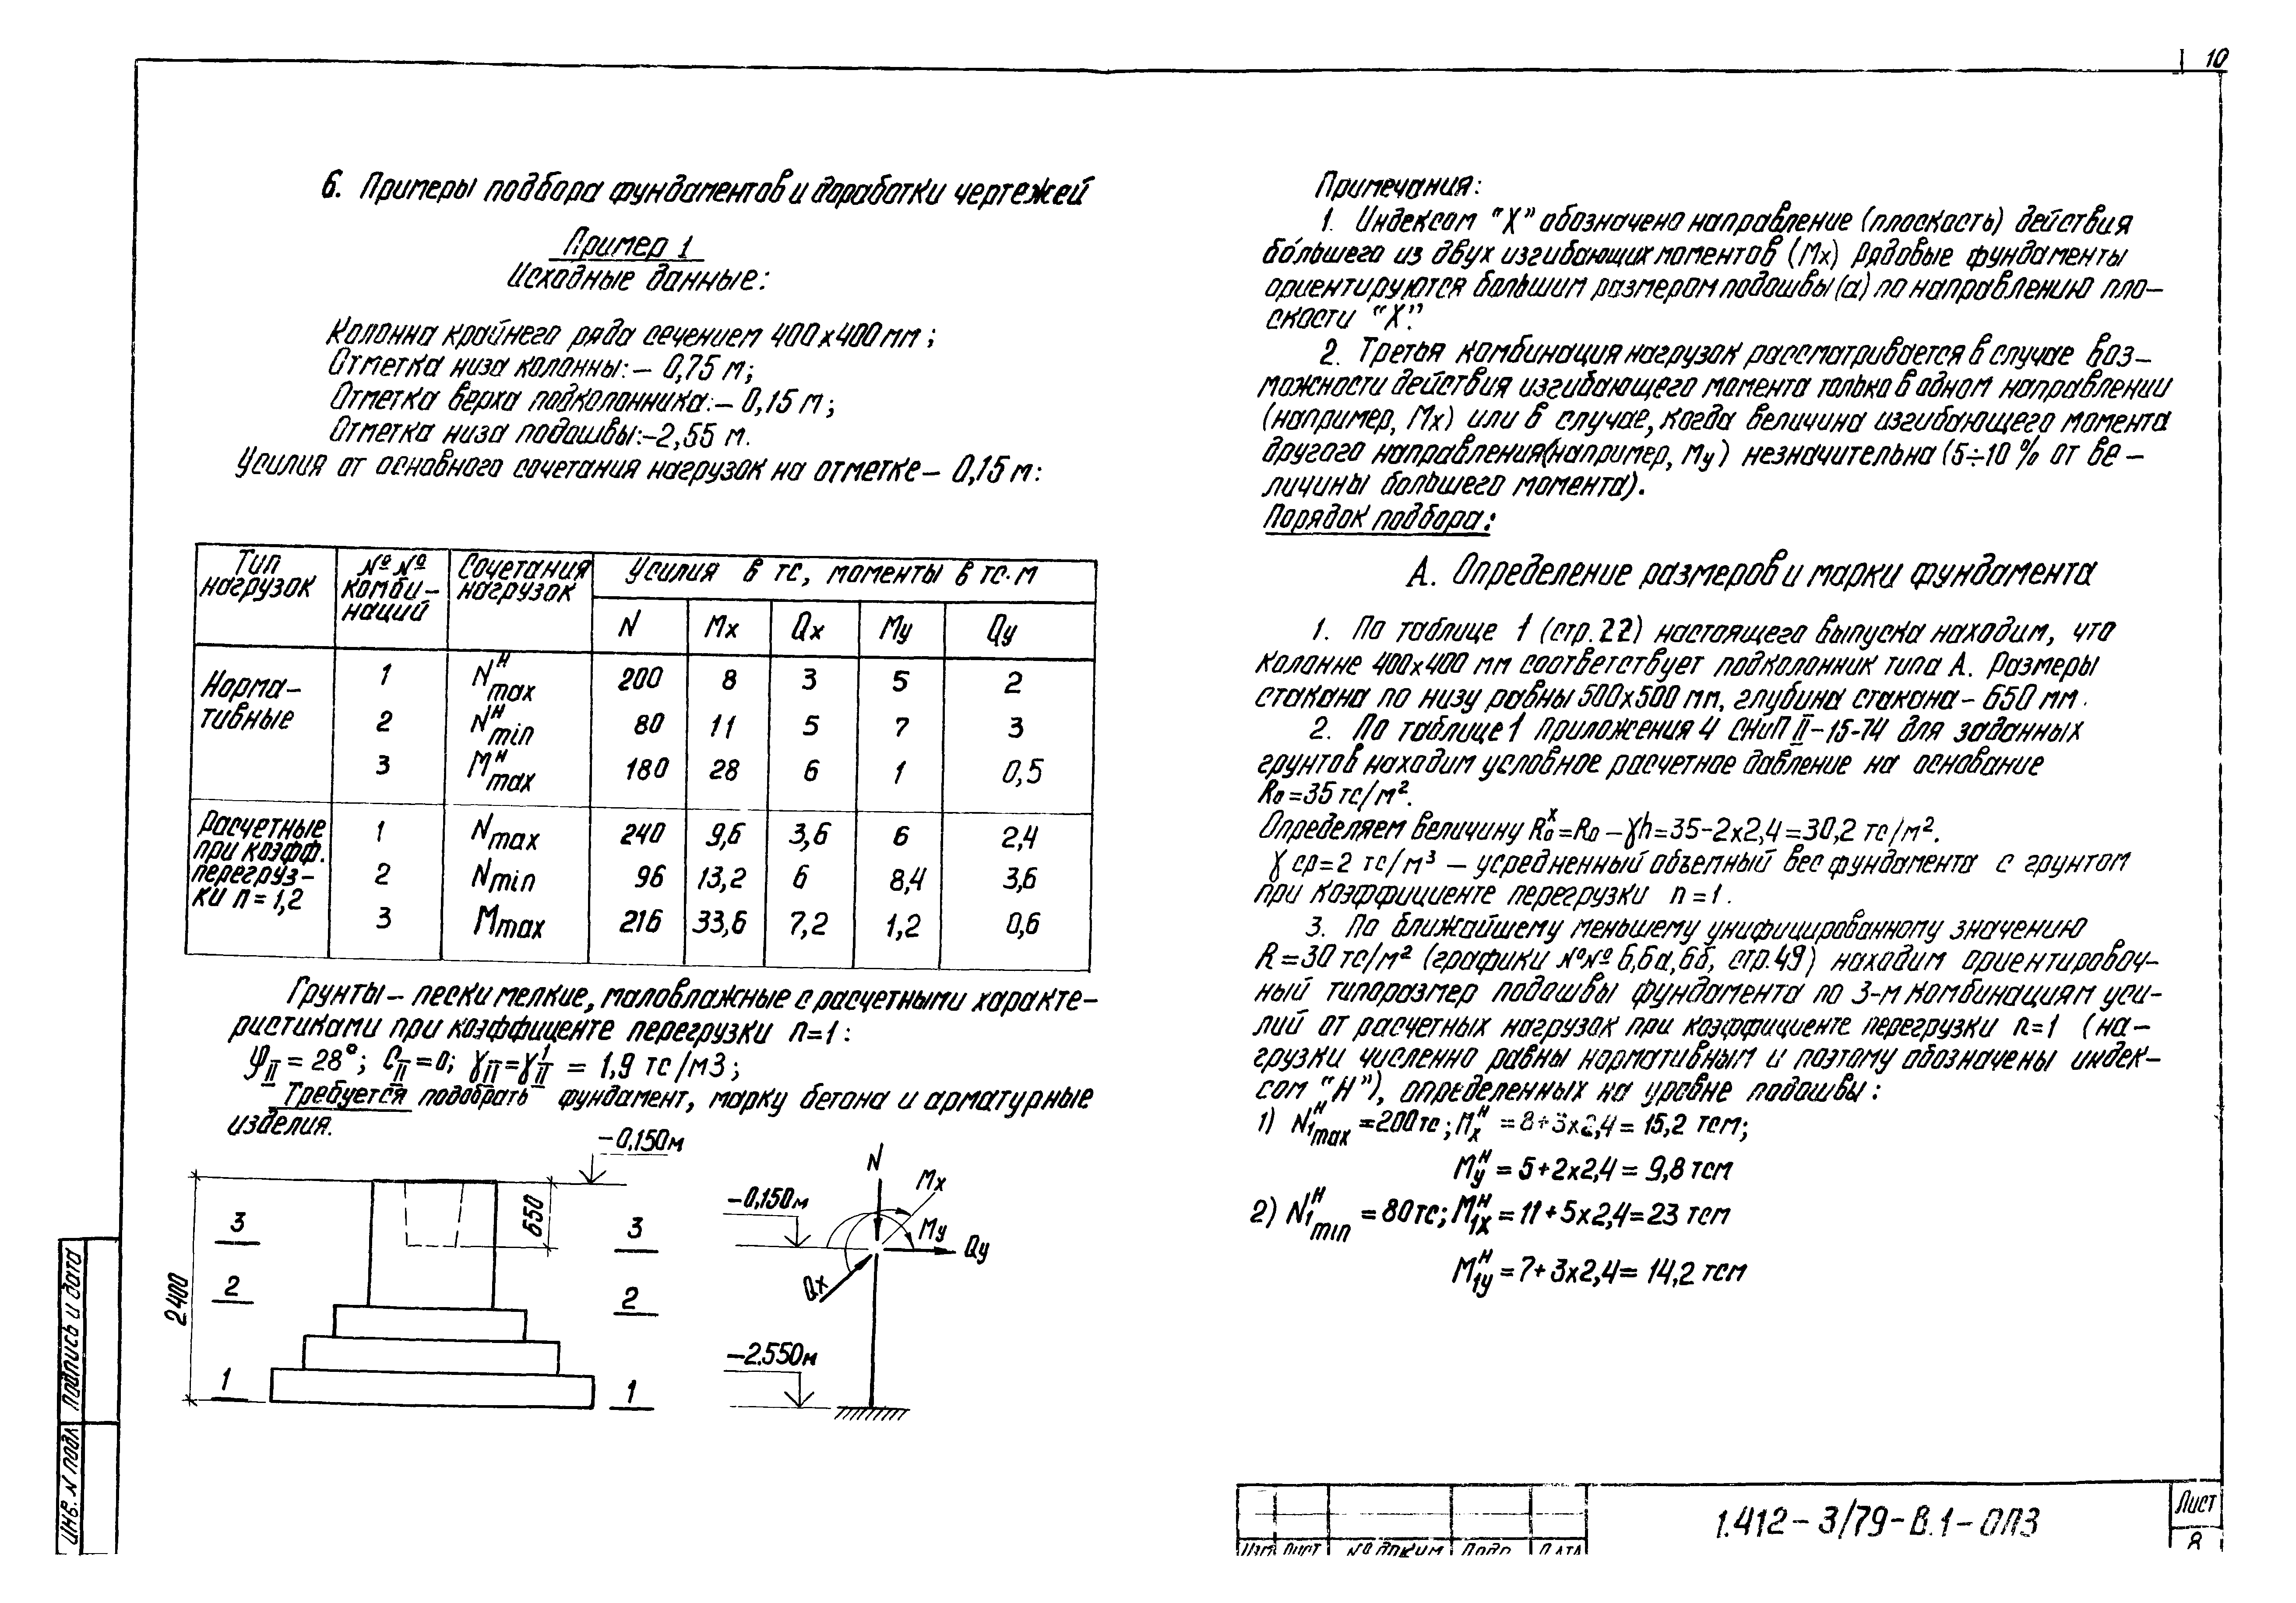 10
6. Примеры подбора фундаментов и доработки чертежей
Пример 1
Исходные данные:
Колонна крайнего ряда сечением 400х400 мм;
Отметка низа колонны:- 0,75 м;
Отметка верха подколонника:- 0,15 м;
Отметка низа подошвы:-2,55 м.
Усилия от основного сочетания нагрузок на отметке- 0,15 м:
Тип нагрузок | №№ комби-наций | Сочетания нагрузок | Усилия в тс, моменты в тс·м
N | Mx | Qx | My | Qy
Норма-тивные | 1 | N^н max | 200 | 8 | 3 | 5 | 2
2 | N^н min | 80 | 11 | 5 | 7 | 3
3 | M^н max | 180 | 28 | 6 | 1 | 0,5
Расчетные при коэфф. перегруз-ки n=1,2 | 1 | N max | 240 | 9,6 | 3,6 | 6 | 2,4
2 | N min | 96 | 13,2 | 6 | 8,4 | 3,6
3 | M max | 216 | 33,6 | 7,2 | 1,2 | 0,6
Грунты- пески мелкие, маловлажные с расчетными характе-
ристиками при коэффициенте перегрузки n=1:
φII = 28°; CII=0; γII=γ'II = 1,9 тс/м3;
Требуется подобрать фундамент, марку бетона и арматурные
изделия.
-0,150м
650
2400
3 3
2 2
1 1
N
Mx
-0,150м
My
Qy
Qx
-2.550м
Примечания:
1. Индексом "X" обозначено направление (плоскость) действия
бо́льшего из двух изгибающих моментов (Mx) Рядовые фундаменты
ориентируются большим размером подошвы (а) по направлению пло-
скости "X".
2. Третья комбинация нагрузок рассматривается в случае воз-
можности действия изгибающего момента только в одном направлении
(например, Mx) или в случае, когда величина изгибающего момента
другого направления(например, My) незначительна (5÷10 % от ве-
личины большего момента).
Порядок подбора:
А. Определение размеров и марки фундамента
1. По таблице 1 (стр.22) настоящего выпуска находим, что
колонне 400х400 мм соответствует подколонник типа А. Размеры
стакана по низу равны 500х500 мм, глубина стакана- 650 мм.
2. По таблице 1 приложения 4 СНиП II-15-74 для заданных
грунтов находим условное расчетное давление на основание
R₀=35 тс/м².
Определяем величину R₀ˣ=R₀-γh=35-2х2,4=30,2 тс/м².
γ ср=2 тс/м³ - усредненный объемный вес фундамента с грунтом
при коэффициенте перегрузки n=1.
3. По ближайшему меньшему унифицированному значению
R=30 тс/м² (графики №№ 6,6а,6б, стр.49) находим ориентировоч-
ный типоразмер подошвы фундамента по 3-м комбинациям уси-
лий от расчетных нагрузок при коэффициенте перегрузки n=1 (на-
грузки численно равны нормативным и поэтому обозначены индек-
сом "Н"), определенных на уровне подошвы:
1) N₁^н max =200тс; M^н x =8+3х2,4= 15,2 тсм;
M^н y =5+2х2,4= 9,8 тсм
2) N₁^н min =80тс; M^н 1x =11+5х2,4=23 тсм
M^н 1y =7+3х2,4= 14,2 тсм
Подпись и дата
Инв. N подл
Изм Лист № докум Подп Дата
1.412-3/79-В.1-ОПЗ
Лист
8